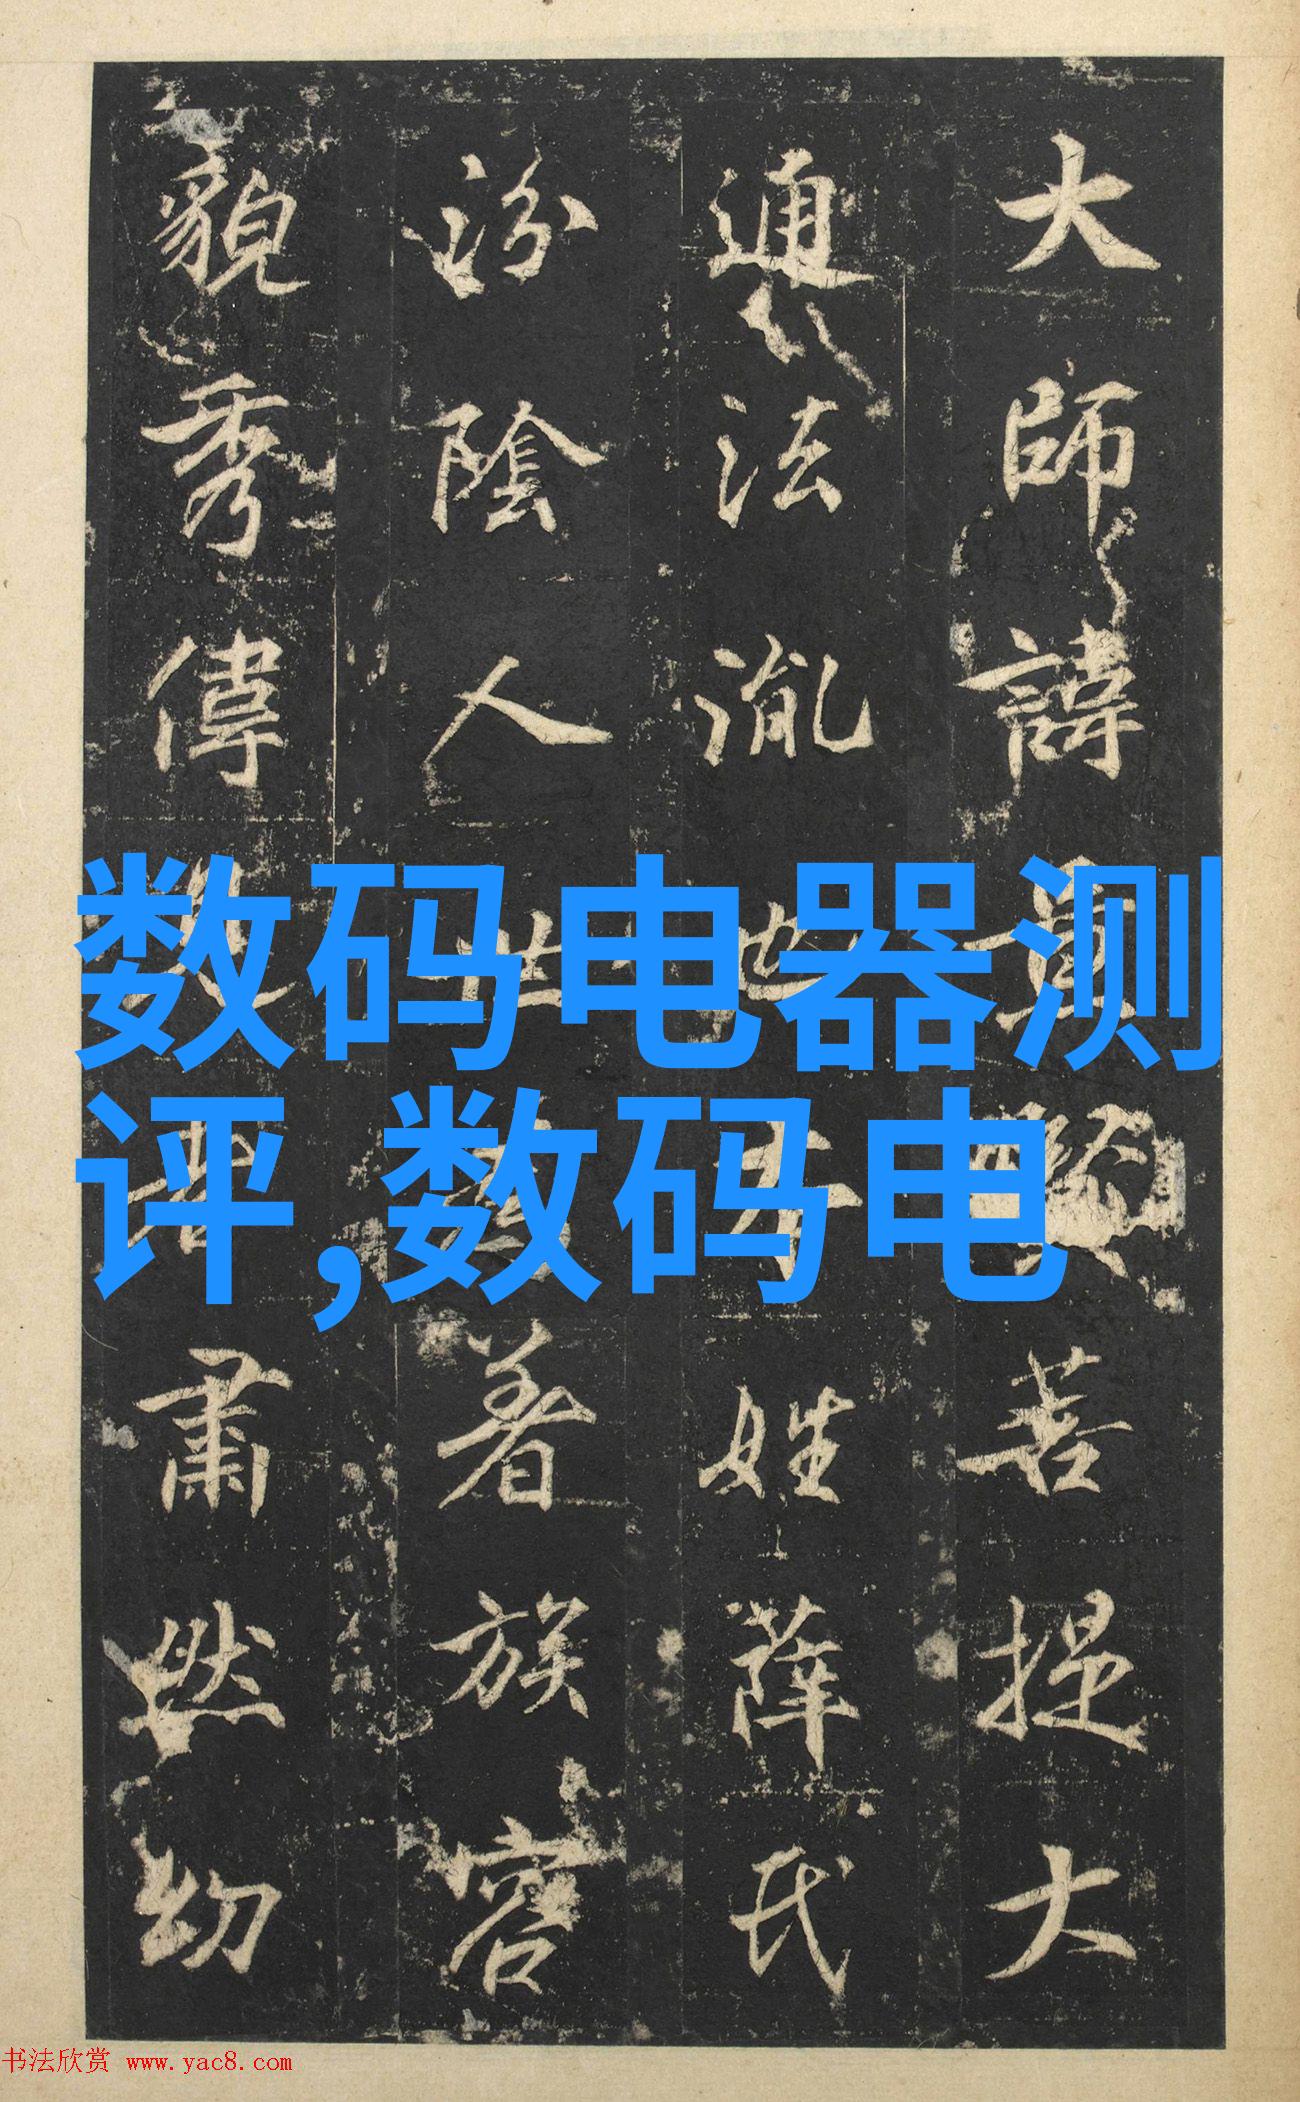 大師諱菩提大
通法姓薛氏
汾陰人著族容
貌秀偉肅然幼
数码电器测
评,数码电
书法欣赏 www.yac8.com